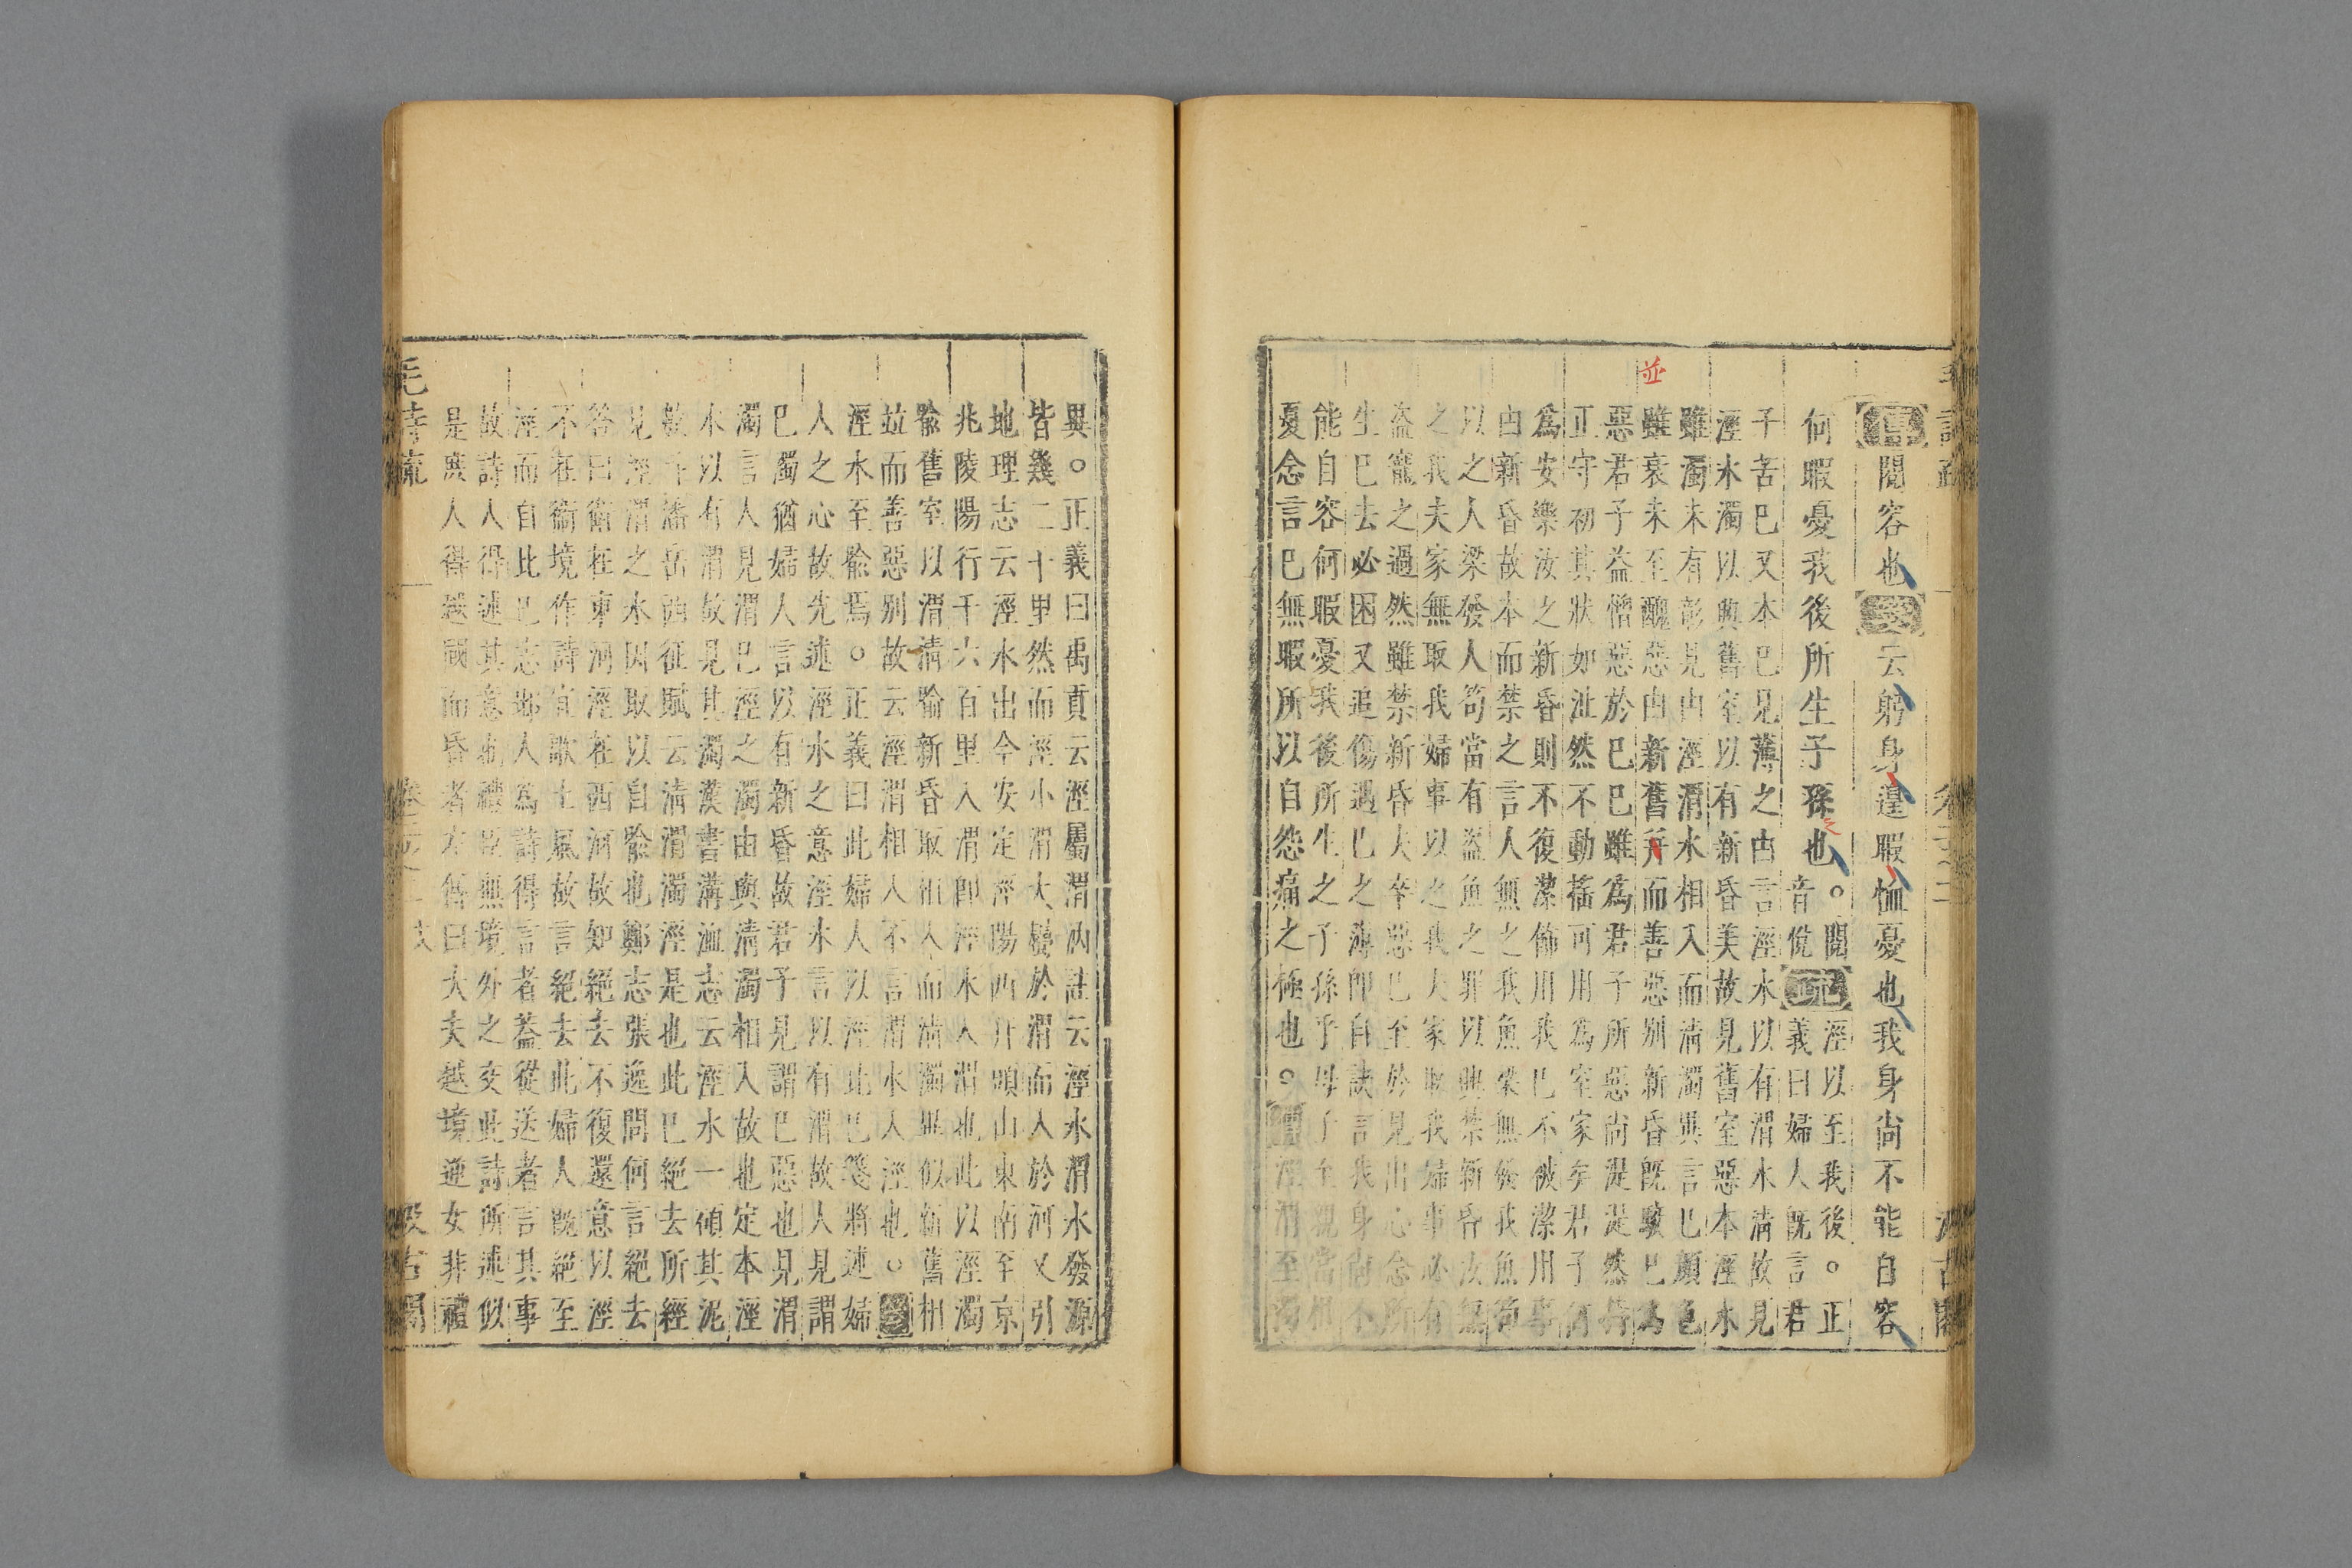 詩疏　卷二之二　汲古閣
傳閱容也箋云躬身遑暇恤憂也我身尚不能自容
何暇憂我後所生子孫也。閱音悅疏涇以至我後。正義曰婦人既言君
子苦巳又本巳見薄之由言涇水以有渭水清故見
涇水濁以興舊室以有新昏美故見舊室惡本涇水
雖濁未有彰見由涇渭水相入而清濁異言巳顏色
並
雖衰未至醜惡由新舊并而善惡別新昏既駮巳為
惡君子益憎惡於巳巳雖為君子所惡尚湜湜然持
正守初其狀如沚然不動搖可用為室家矣君子何
為安樂汝之新昏則不復潔飾用我巳不被潔用事
由新昏故本而禁之言人無之我魚梁無發我魚笱
以之人梁發人笱當有盜魚之罪以興禁新昏汝無
之我夫家無取我婦事以之我夫家取我婦事必有
盜寵之過然雖禁新昏夫卒惡巳至於見出心念所
生巳去必困又追傷遇巳之薄即自訣言我身尚不
能自容何暇憂我後所生之子孫乎母子至親當相
憂念言巳無暇所以自怨痛之極也。傳涇渭至濁
異。正義曰禹貢云涇屬渭汭註云涇水渭水發源
皆幾二十里然而涇小渭大屬於渭而入於河又引
地理志云涇水出今安定涇陽西幵頭山東南至京
兆陵陽行千六百里入渭即涇水入渭也此以涇濁
喻舊室以渭清喻新昏取相入而清濁異似新舊相
竝而善惡別故云涇渭相入不言渭水入涇也。箋
涇水至喻焉。正義曰此婦人以涇比巳箋將述婦
人之心故先述涇水之意涇水言以有渭故人見謂
巳濁猶婦人言以有新昏故君子見謂巳惡也見渭
濁言人見渭巳涇之濁由與清濁相入故也定本涇
水以有渭故見其濁漢書溝洫志云涇水一碩其泥
數斗潘岳西征賦云清渭濁涇是也此巳絕去所經
見涇渭之水因取以自喻也鄭志張逸問何言絕去
答曰衛在東河涇在西河故知絕去不復還意以涇
不在衛境作詩宜歌土風故言絕去此婦人既絕至
涇而自比巳志邶人為詩得言者蓋從送者言其事
故詩人得述其意也禮臣無境外之交此詩所述似
是庶人得越國而昏者左傳曰大夫越境逆女非禮
毛詩疏　卷二之二　汲古閣